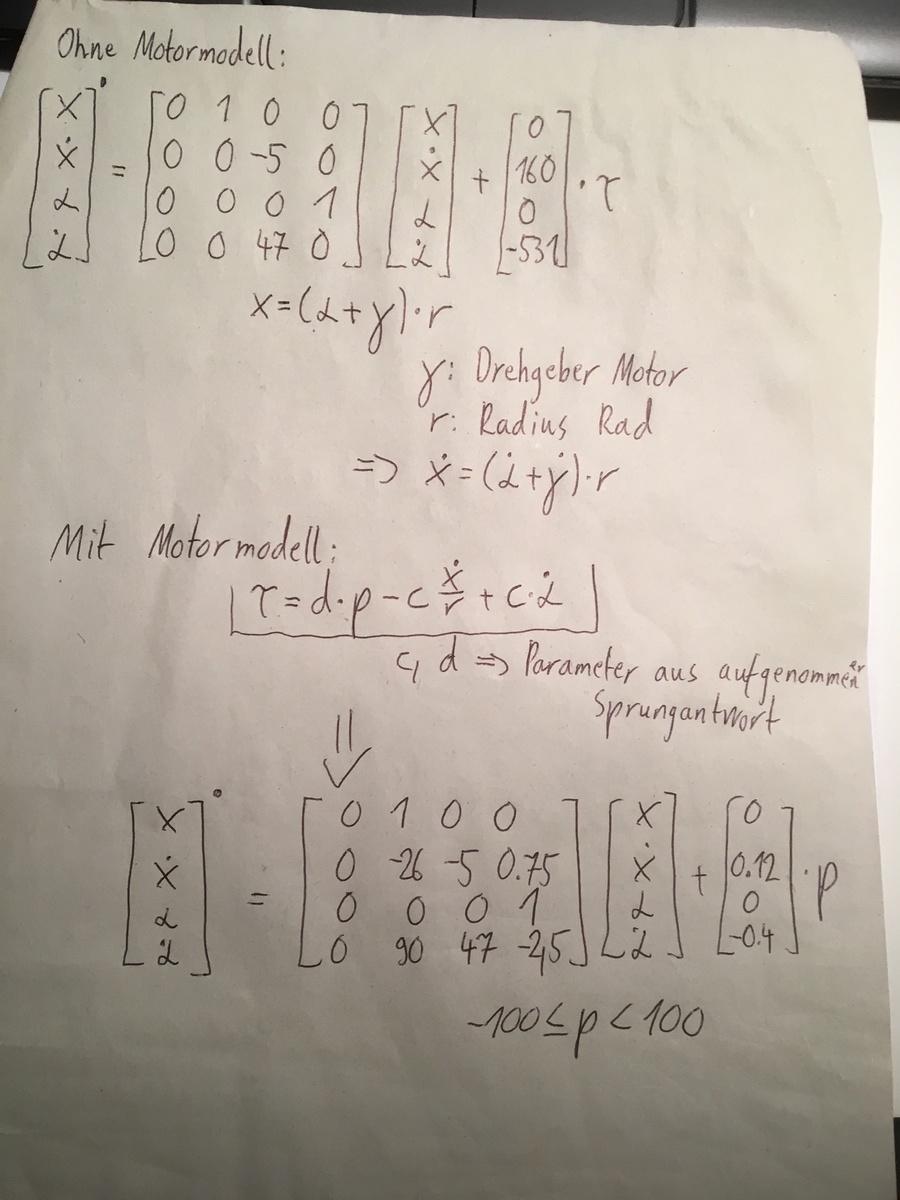 Ohne Motormodell:
[x ẋ α α̇]˙ = [0 1 0 0; 0 0 -5 0; 0 0 0 1; 0 0 47 0] [x ẋ α α̇] + [0 160 0 -531] · τ
x = (α + γ) · r
γ: Drehgeber Motor
r: Radius Rad
=> ẋ = (α̇ + γ̇) · r
Mit Motormodell:
τ = d · p - c ẋ/r + c · α̇
c, d => Parameter aus aufgenommener
Sprungantwort
⇓
[x ẋ α α̇]˙ = [0 1 0 0; 0 -26 -5 0.75; 0 0 0 1; 0 90 47 -2,5] [x ẋ α α̇] + [0 0.12 0 -0.4] · p
-100 ≤ p < 100